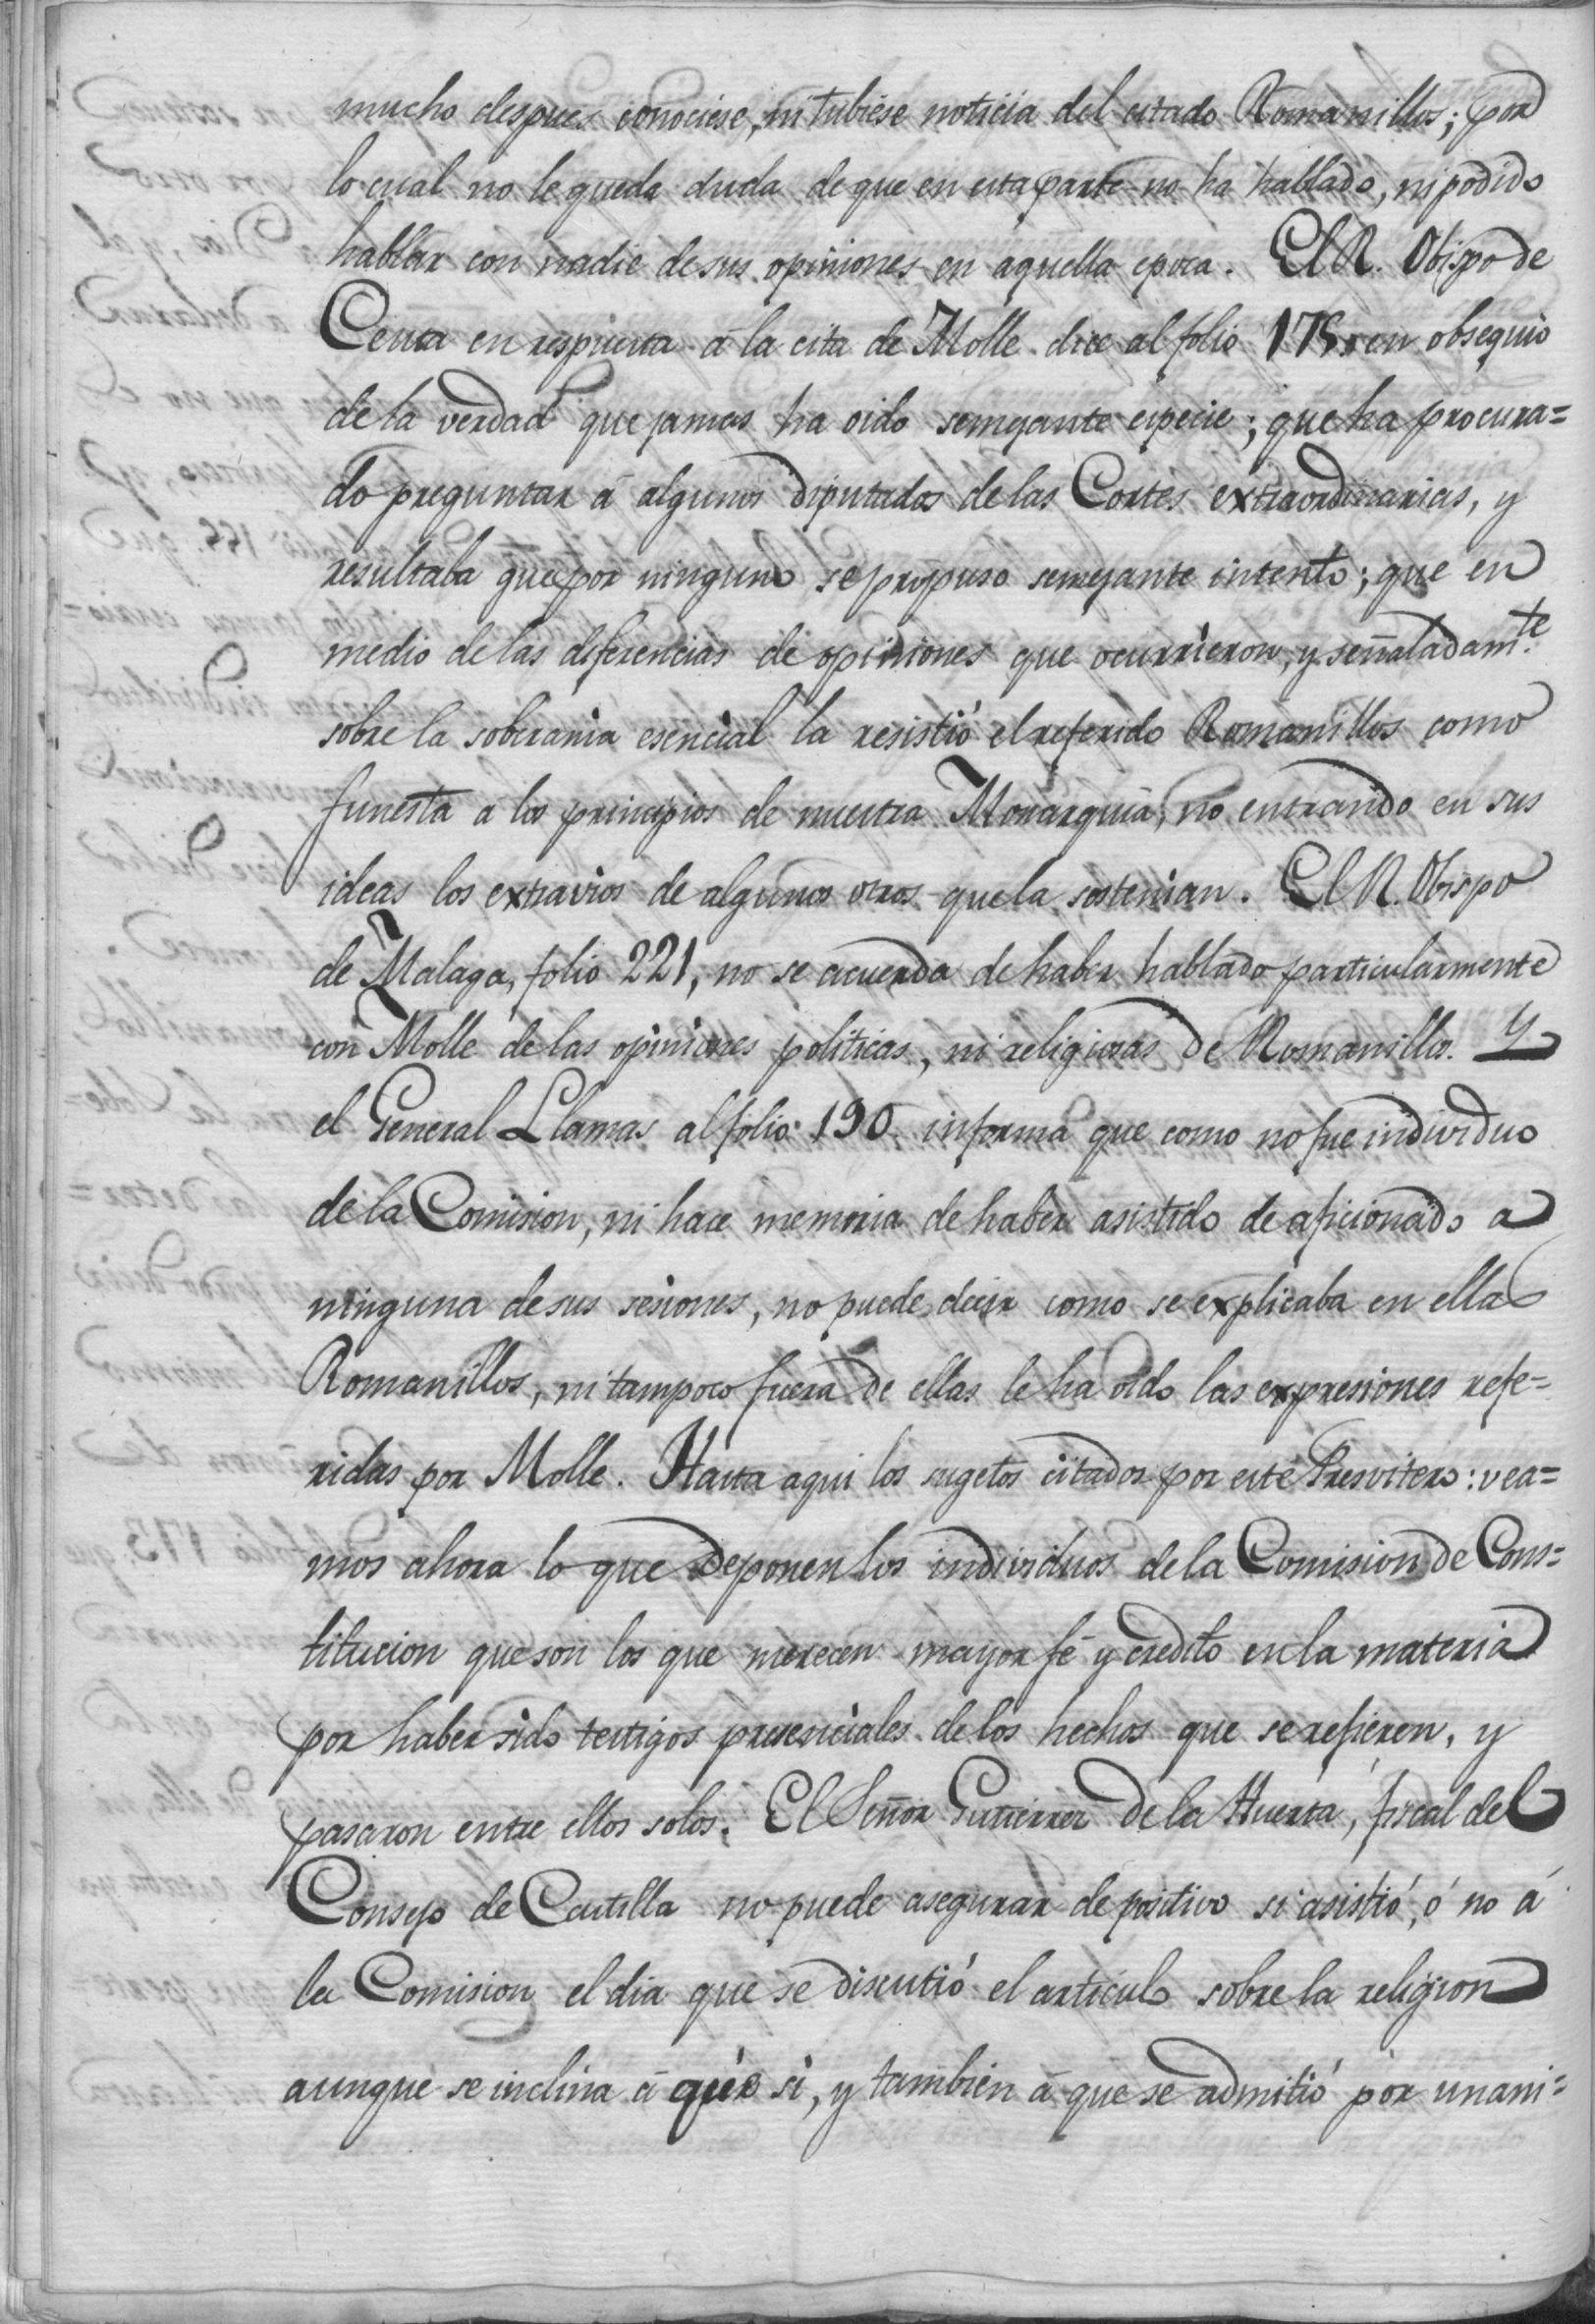 mucho despues conociese, ni tubiese noticia del citado Romanillos; por
lo cual no le queda duda de que en esta parte no ha hablado, ni podido
hablar con nadie de sus opiniones en aquella epoca. El R. Obispo de
Ceuta en respuesta á la cita de Molle dice al folio 175, en obsequio
de la verdad que jamas ha oido semejante especie; que ha procura=
do preguntar á algunos diputados de las Cortes extraordinarias, y
resultaba que por ninguno se propuso semejante intento; que en
medio de las diferencias de opiniones que ocurrieron, y señaladam.te
sobre la soberania esencial la resistió el referido Romanillos como
funesta a los principios de nuestra Monarquia, no entrando en sus
ideas los extravios de algunos otros que la sostenian. El R. Obispo
de Malaga, folio 221, no se acuerda de haber hablado particularmente
con Molle de las opiniones politicas, ni religiosas de Romanillos. Y
el General Llamas al folio 190 informa que como no fue individuo
de la Comision, ni hace memoria de haber asistido de aficionado a
ninguna de sus sesiones, no puede decir como se explicaba en ellas
Romanillos, ni tampoco fuera de ellas le ha oido las expresiones refe=
ridas por Molle. Hasta aqui los sugetos citados por este Presvitero: vea=
mos ahora lo que deponen los individuos de la Comision de Cons=
titucion que son los que merecen mayor fé y credito en la materia
por haber sido testigos presenciales de los hechos que se refieren, y
pasaron entre ellos solos. El Señor Gutierrez de la Huerta, fiscal del
Consejo de Castilla no puede asegurar de positivo si asistió, ó no á
la Comision el dia que se discutió el articulo sobre la religion
aunque se inclina á que si, y tambien á que se admitió por unani=